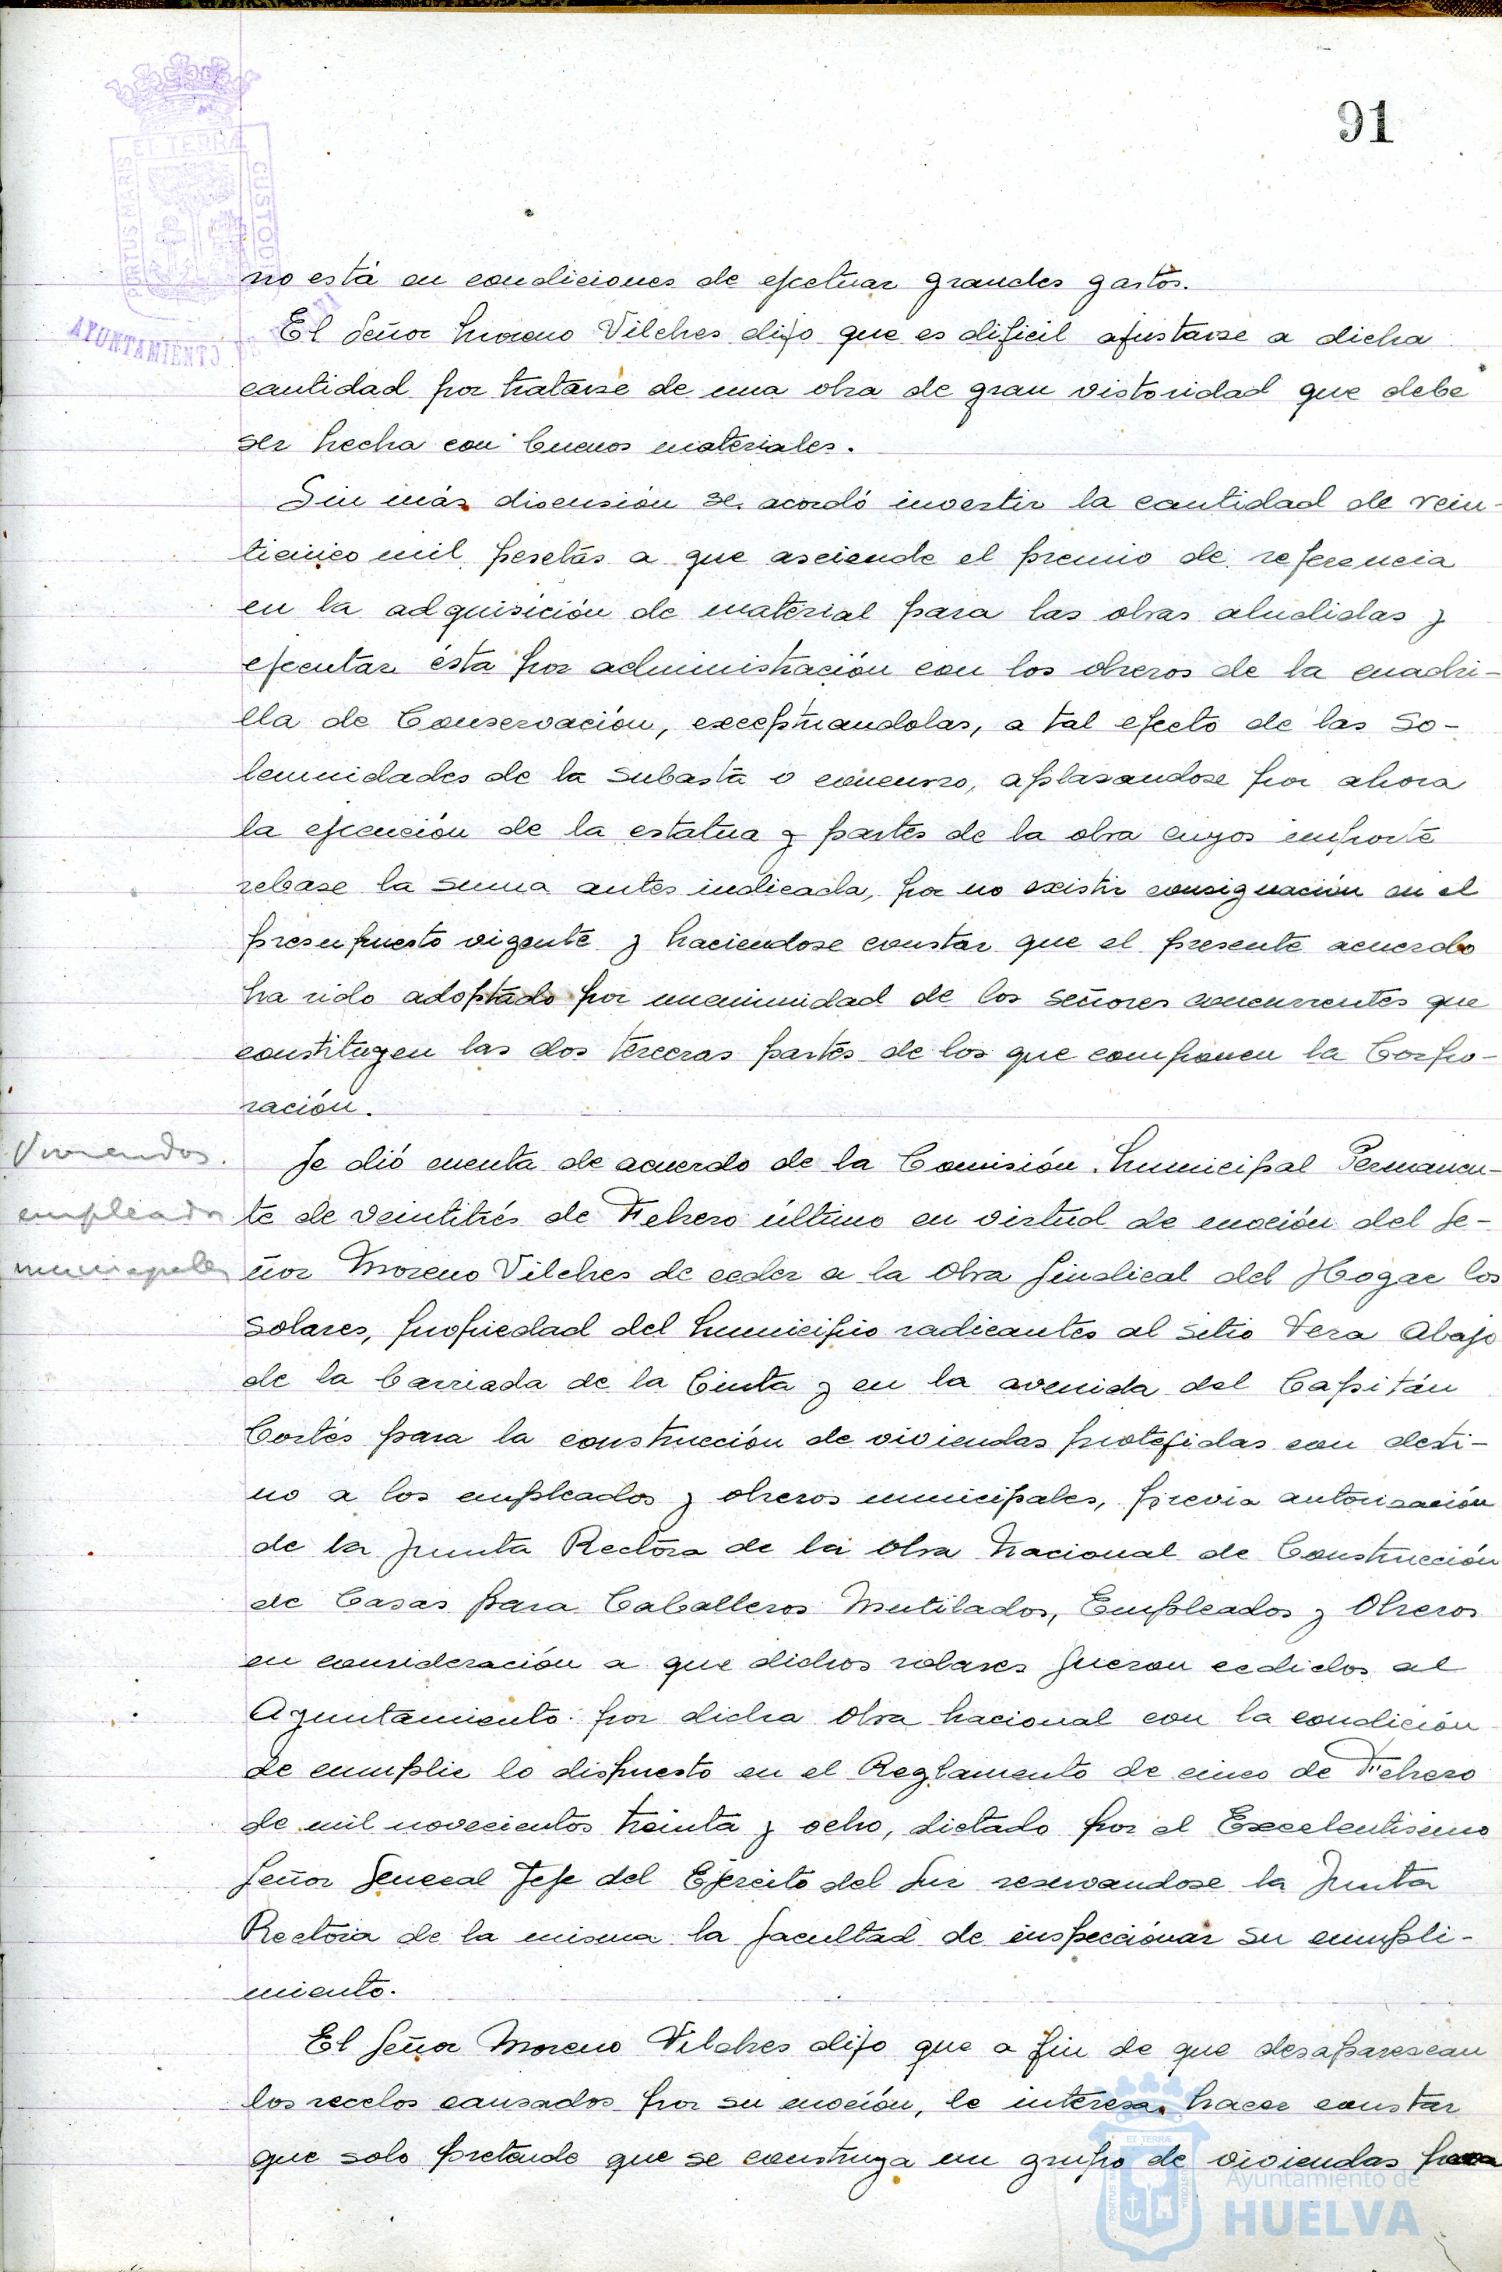 91
PORTUS MARIS ET TERRA CUSTODIA
AYUNTAMIENTO DE
no está en condiciones de efectuar grandes gastos.
El Señor Moreno Vilches dijo que es dificil ajustarse a dicha
cantidad por tratarse de una obra de gran vistosidad que debe
ser hecha con buenos materiales.
Sin más discusión se acordó invertir la cantidad de vein-
ticinco mil pesetas a que asciende el premio de referencia
en la adquisición de material para las obras aludidas y
ejecutar ésta por administración con los obreros de la cuadri-
lla de Conservación, exceptuandolas, a tal efecto de las so-
lemnidades de la subasta o concurso, aplazandose por ahora
la ejecución de la estatua y partes de la obra cuyos importe
rebase la suma antes indicada, por no existir consignación en el
presupuesto vigente y haciendose constar que el presente acuerdo
ha sido adoptado por unanimidad de los señores concurrentes que
constituyen las dos terceras partes de los que componen la Corpo-
ración.
Viviendas
empleados
municipales
Se dió cuenta de acuerdo de la Comisión Municipal Permanen-
te de veintitrés de Febrero último en virtud de moción del Se-
ñor Moreno Vilches de ceder a la Obra Sindical del Hogar los
solares, propiedad del Municipio radicantes al sitio Vera Abajo
de la barriada de la Cinta y en la avenida del Capitán
Cortés para la construcción de viviendas protegidas con desti-
no a los empleados y obreros municipales, previa autorización
de la Junta Rectora de la Obra Nacional de Construcción
de Casas para Caballeros Mutilados, Empleados y Obreros
en consideración a que dichos solares fueron cedidos al
Ayuntamiento por dicha Obra Nacional con la condición
de cumplir lo dispuesto en el Reglamento de cinco de Febrero
de mil novecientos treinta y ocho, dictado por el Excelentisimo
Señor General Jefe del Ejército del Sur reservandose la Junta
Rectora de la misma la facultad de inspeccionar su cumpli-
miento.
El Señor Moreno Vilches dijo que a fin de que desaparezcan
los recelos causados por su moción, le interesa hacer constar
que solo pretende que se construya un grupo de viviendas para
Ayuntamiento de
HUELVA